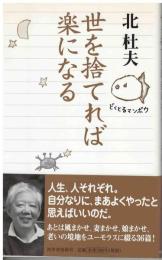 北杜夫
世を捨てれば
楽になる
どくとるマンボウ
人生、人それぞれ。
自分なりに、まあよくやったと
思えばいいのだ。
あとは風まかせ、妻まかせ、娘まかせ、
老いの境地をユーモラスに綴る36篇!